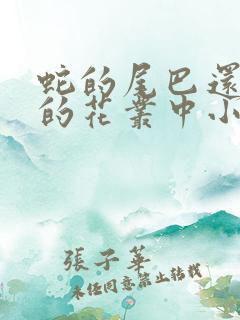 蛇的尾巴還
的花叢中小
張子華
未經同意禁止轉載